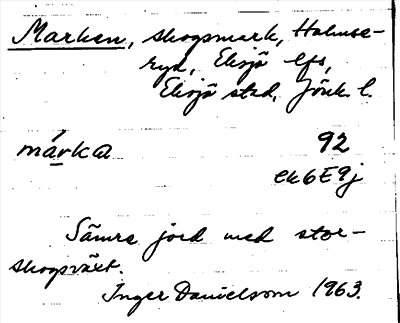 Marken, skogsmark, Holmse-
ryd, Eksjö lfs,
Eksjö stad, Jönk. l.
márka 92
ek 6E9j
Sämre jord med stor-
skogsväxt.
Inger Danielsson 1963.